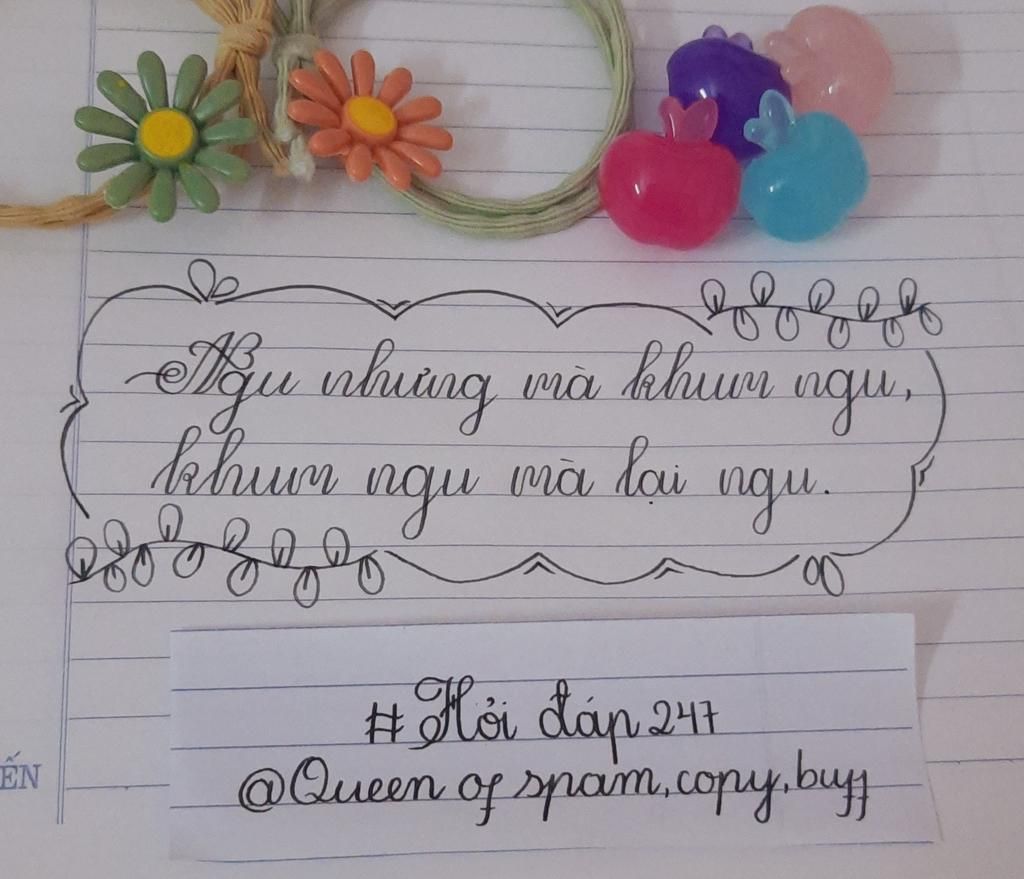 Ngu nhưng mà khum ngu,
khum ngu mà lại ngu.
#Hỏi đáp 247
@Queen of spam, copy, buff
ẾN